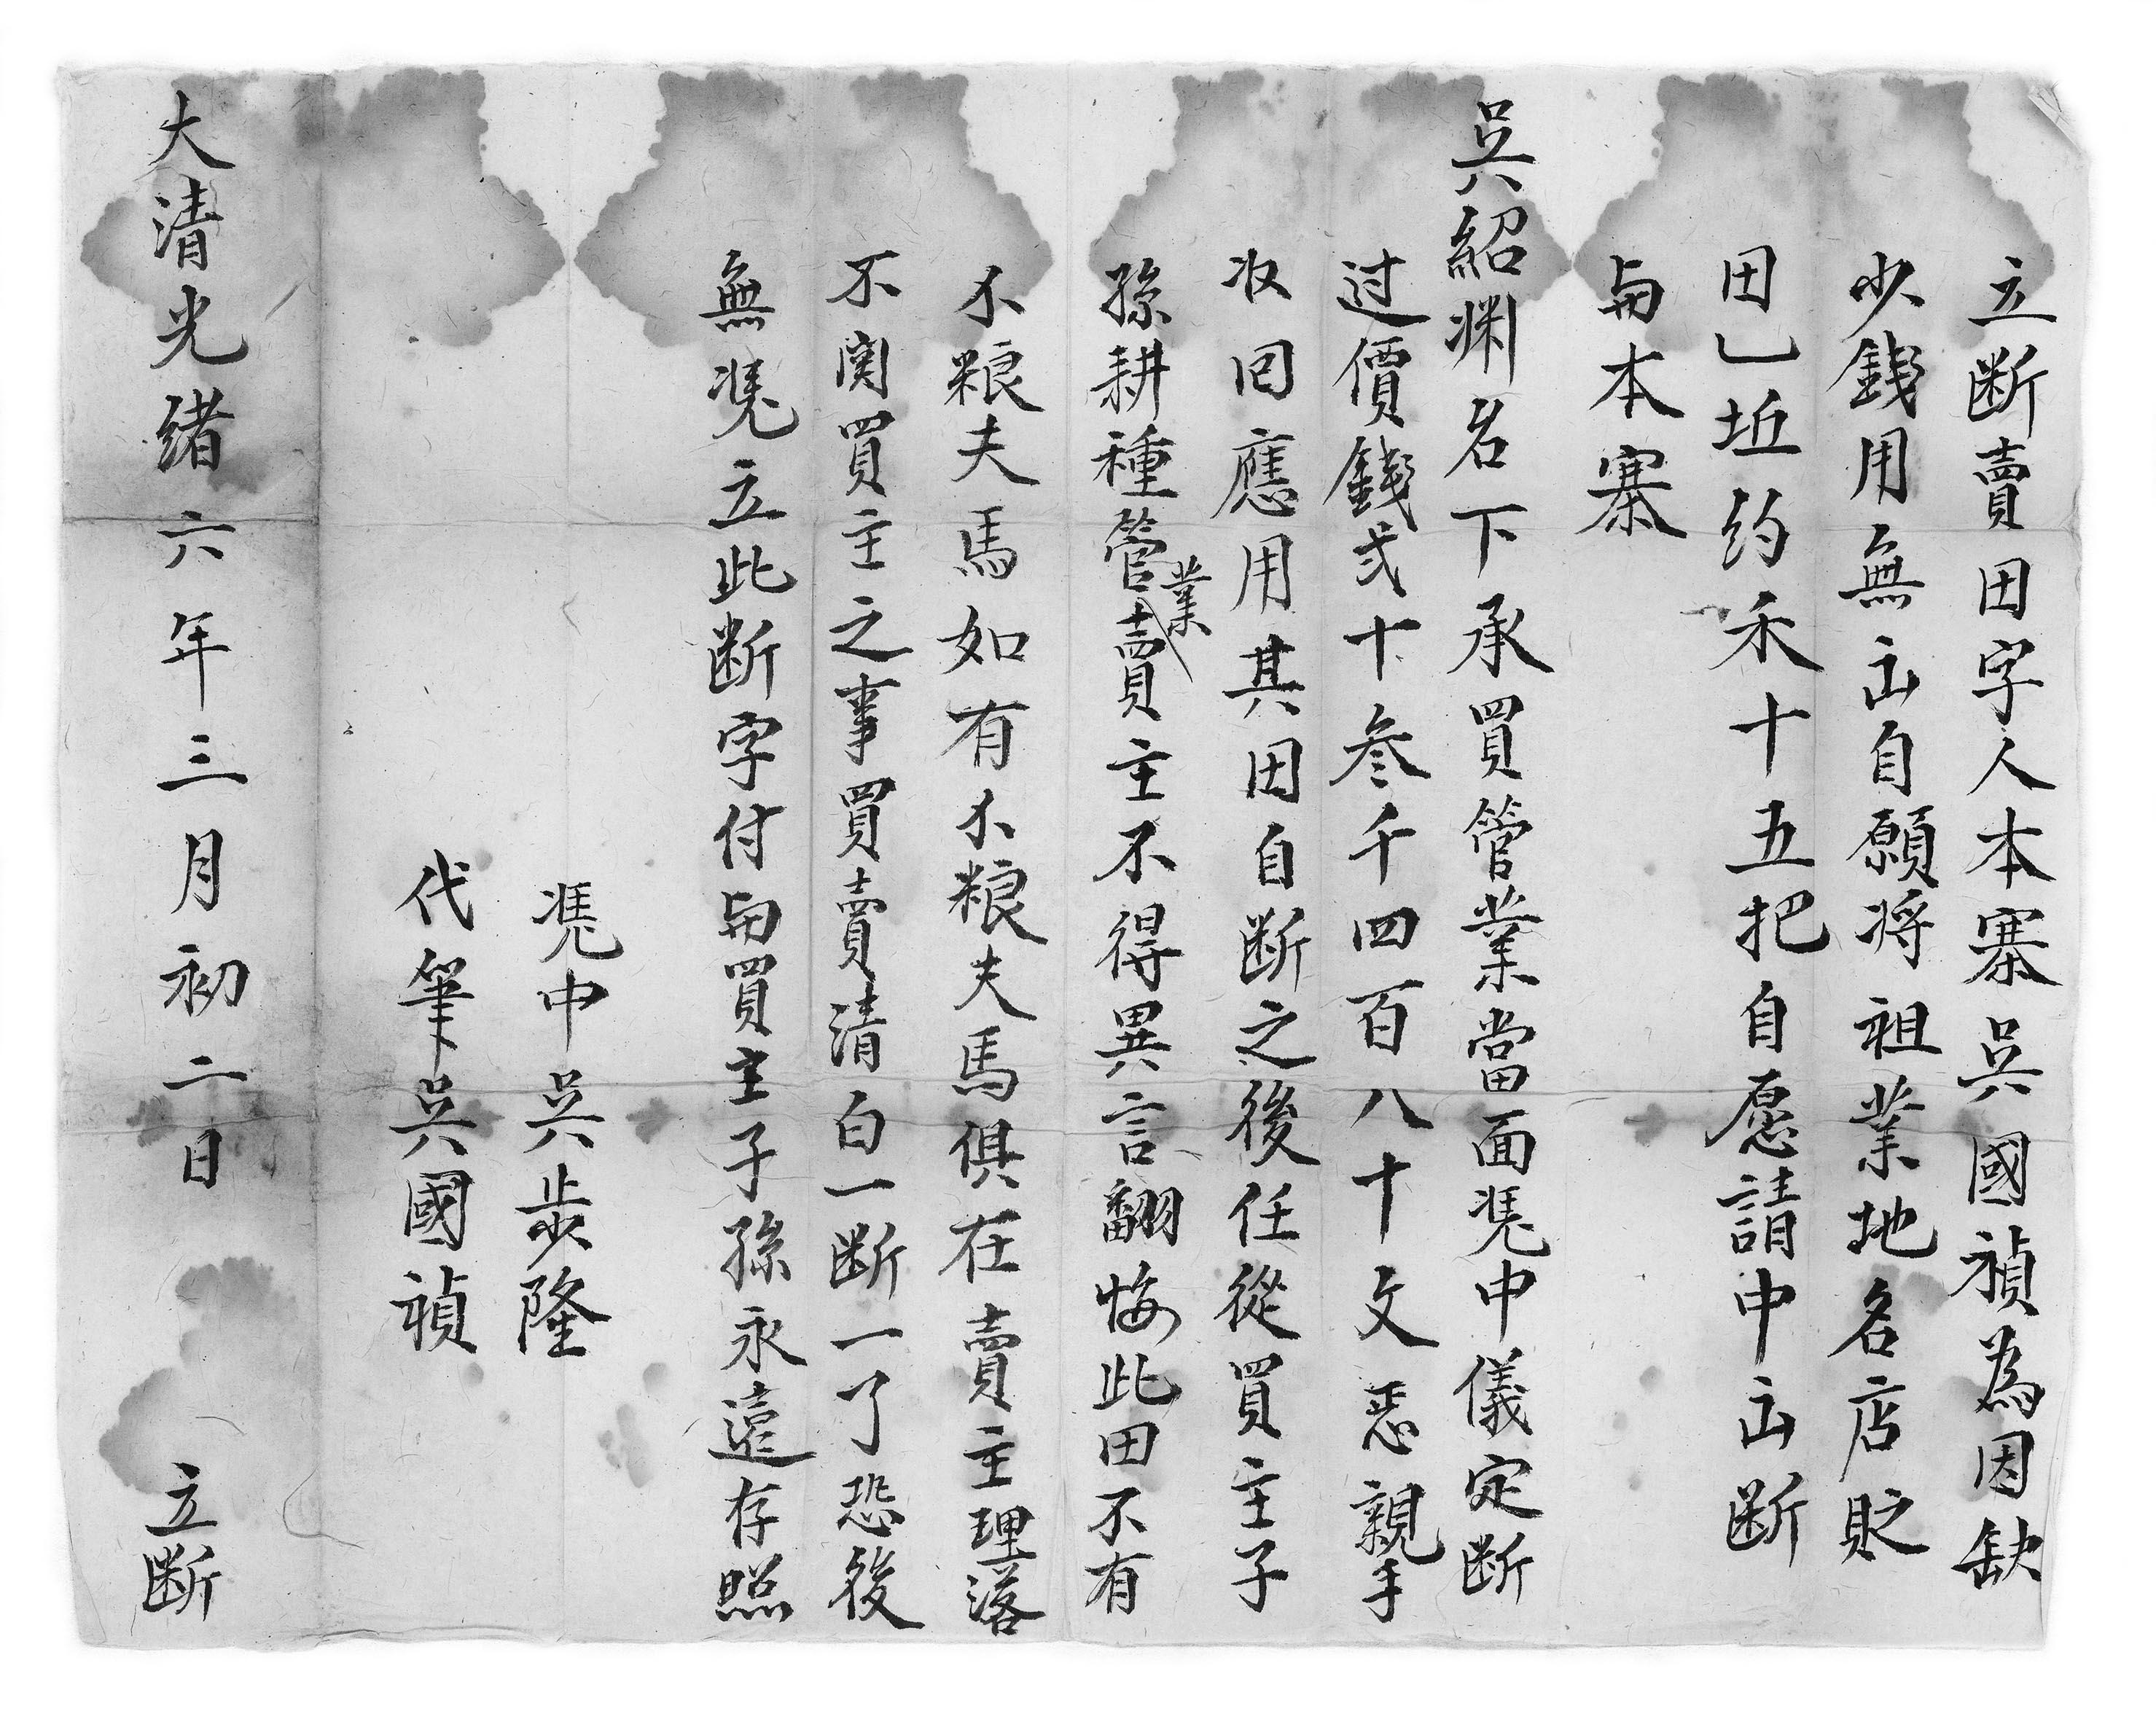 立断賣田字人本寨吳國禎為因缺
少錢用無出自願将祖業地名店貶
田乚坵约禾十五把自愿請中出断
与本寨
吳紹渊名下承買管業當面凴中儀定断
过價錢弍十叁千四百八十文恁親手
收回應用其田自断之後任從買主子
孫耕種管業賣主不得異言翻悔此田不有
不粮夫馬如有不粮夫馬俱在賣主理落
不関買主之事買賣清白一断一了恐後
無凴立此断字付与買主子孫永遠存照
凴中吳步隆
代筆吳國禎
大清光緒六年三月初二日 立断